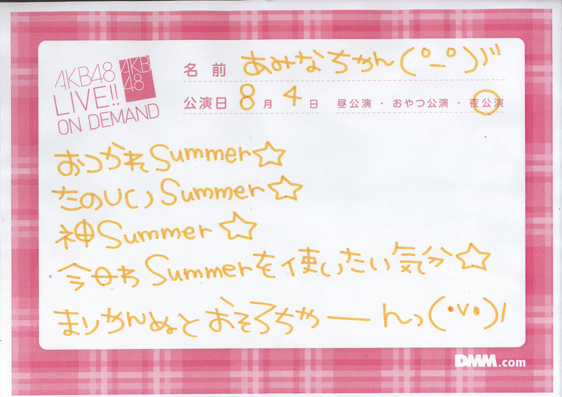 AKB48
LIVE!!
ON DEMAND
AKB
48
名前 あみなちゃん(°_°)ﾉﾞ
公演日 8月4日 昼公演・おやつ公演・夜公演
おつかれSummer☆
たのしいSummer☆
神Summer☆
今日わSummerを使いたい気分☆
まりかんぬとおそろちゃーんっ(・v・)ﾉ
DMM.com